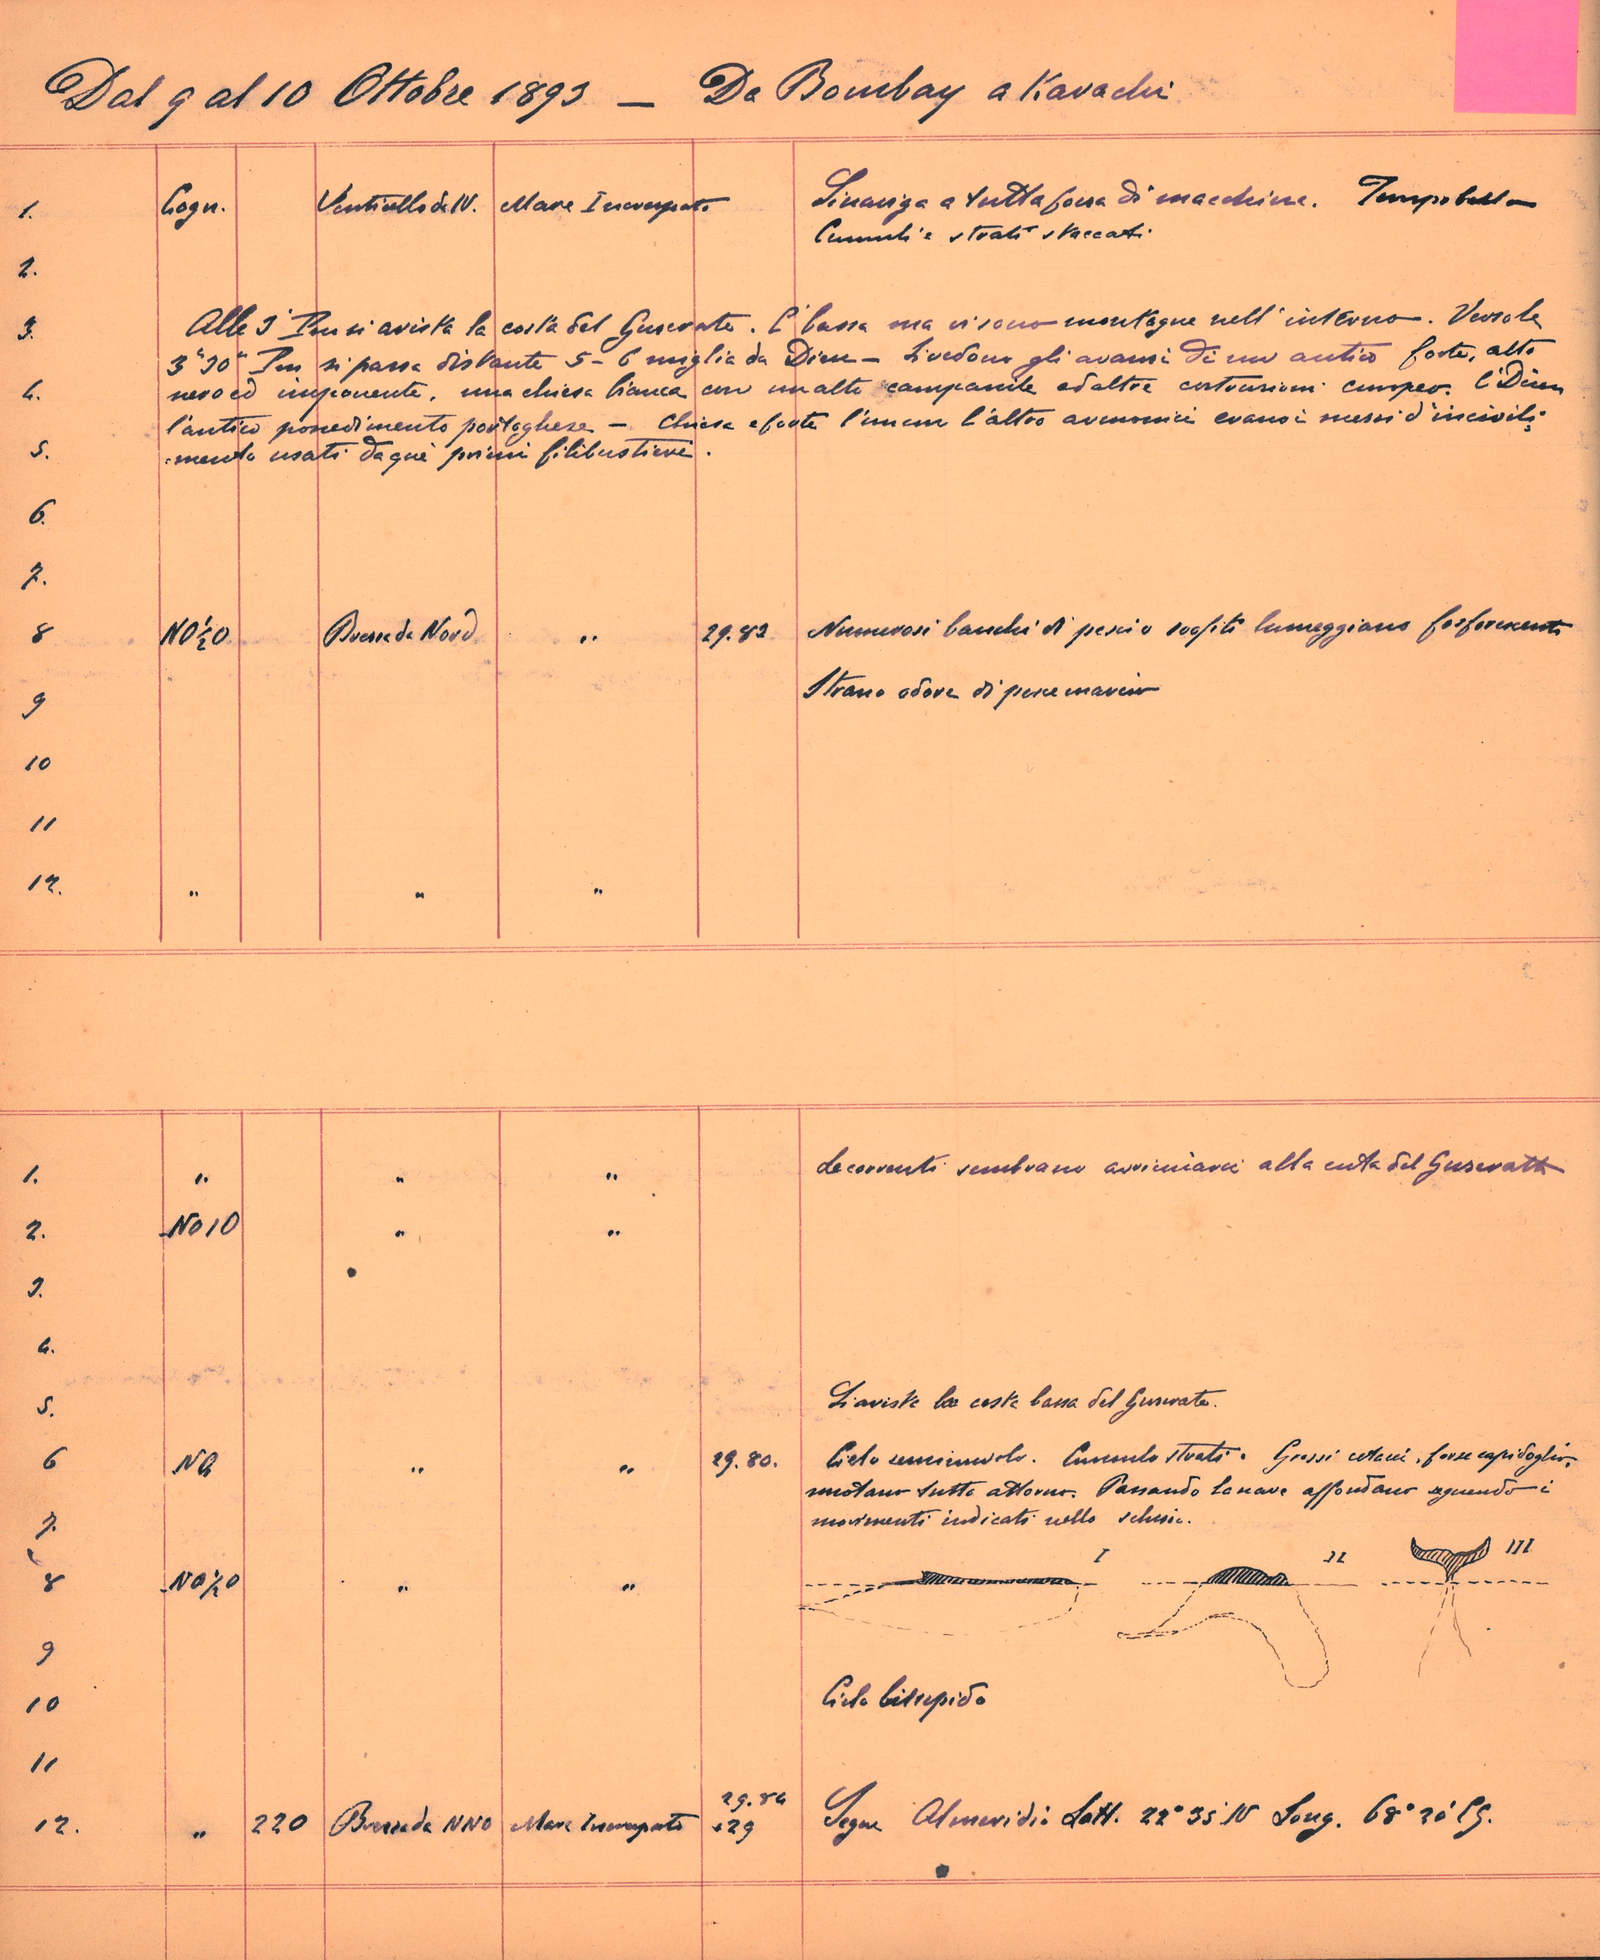 Dal 9 al 10 Ottobre 1893 — Da Bombay a Karachi
1. Cogn. Venticello da N. Mare Increspato Si naviga a tutta forza di macchina. Tempo bello
Cumuli e strati staccati
2.
3. Alle 3 Pm si avista la costa del Guserate. È bassa ma vi sono montagne nell'interno. Verso le
3h30m Pm si passa distante 5-6 miglia da Dieu — Si vedono gli avanzi di un antico forte, alto
4. nero ed imponente, una chiesa bianca con un alto campanile ed altre costruzioni europee. È Dieu
l'antico possedimento portoghese — Chiesa e forte l'un con l'altro armonici erano i mezzi d'incivili=
5. =mento usati da quei primi filibustieri.
6.
7.
8 NO½O Brezza da Nord " 29.82 Numerosi banchi di pesci o sogliti lumeggiano fosforescenti
9 Strano odore di pesce marcio
10
11
12. " " "
1. " " " Le correnti sembrano avvicinarci alla costa del Guserate
2. NO10 " "
3.
4.
5. Si avista la costa bassa del Guserate.
6 NO " " 29.80. Cielo seminuvolo. Cumulo strati. Grossi cetacei, forse capidoglio,
nuotano tutto attorno. Passando la nave affondano seguendo i
7. movimenti indicati nello schizzo.
I II III
8 NO½O " "
9
10 Cielo
11
12. " 220 Brezza da NNO Mare Increspato 29.84 Segue Al meridio Latt. 22° 35' N Long. 68° 20' EG.
+29